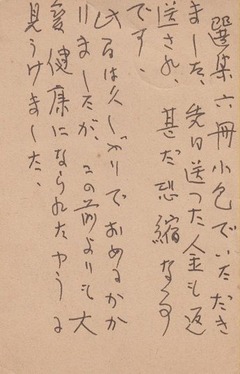 選集六冊小包でいただき
ました、先日送つた金も返
送され、甚だ恐縮なる
です、
此日は久しぶりでおめにかか
りましたが、この前よりも大
変健康になられたやうに
見うけました、